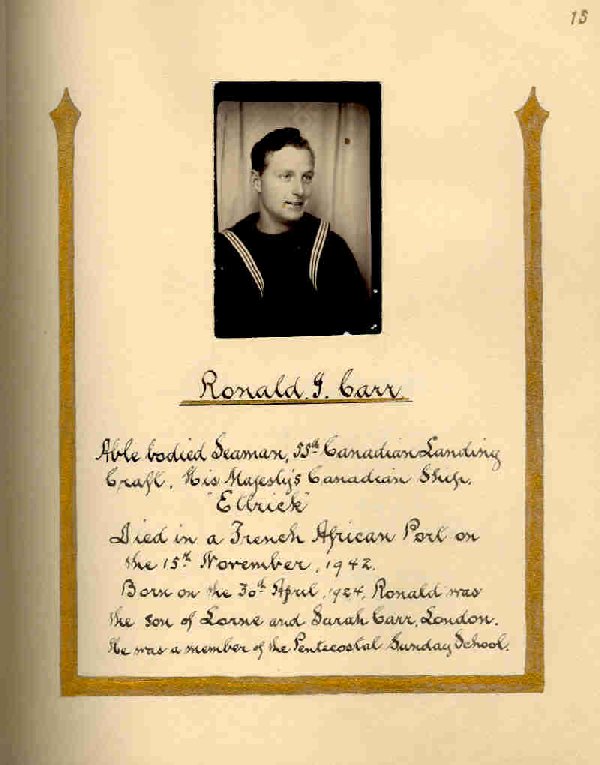 15
Ronald. G. Carr.
Able bodied Seaman, 55th Canadian Landing
Craft, His Majesty's Canadian Ship.
"Ettrick"
Died in a French African Port on
the 15th November, 1942.
Born on the 30th April, 1924, Ronald was
the son of Lorne and Sarah Carr, London.
He was a member of the Pentecostal Sunday School.